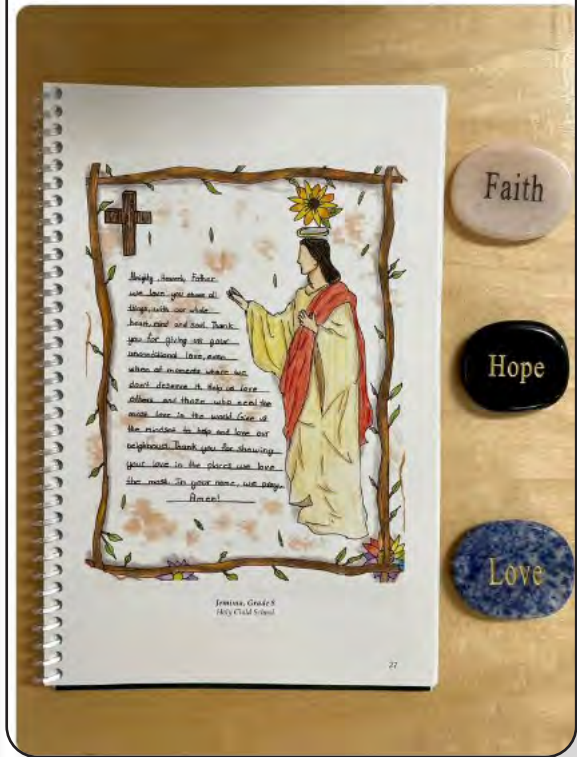 Almighty, Heavenly Father
we love you above all
things, with our whole
heart, mind and soul. Thank
you for giving us your
unconditional love, even
when at moments where we
don't deserve it. Help us love
others and those who need the
most love in the world. Give us
the mindset to help and love our
neighbours. Thank you for showing
your love in the places we love
the most. In your name, we pray.
Amen!
Jemima, Grade 8
Holy Child School
27
Faith
Hope
Love